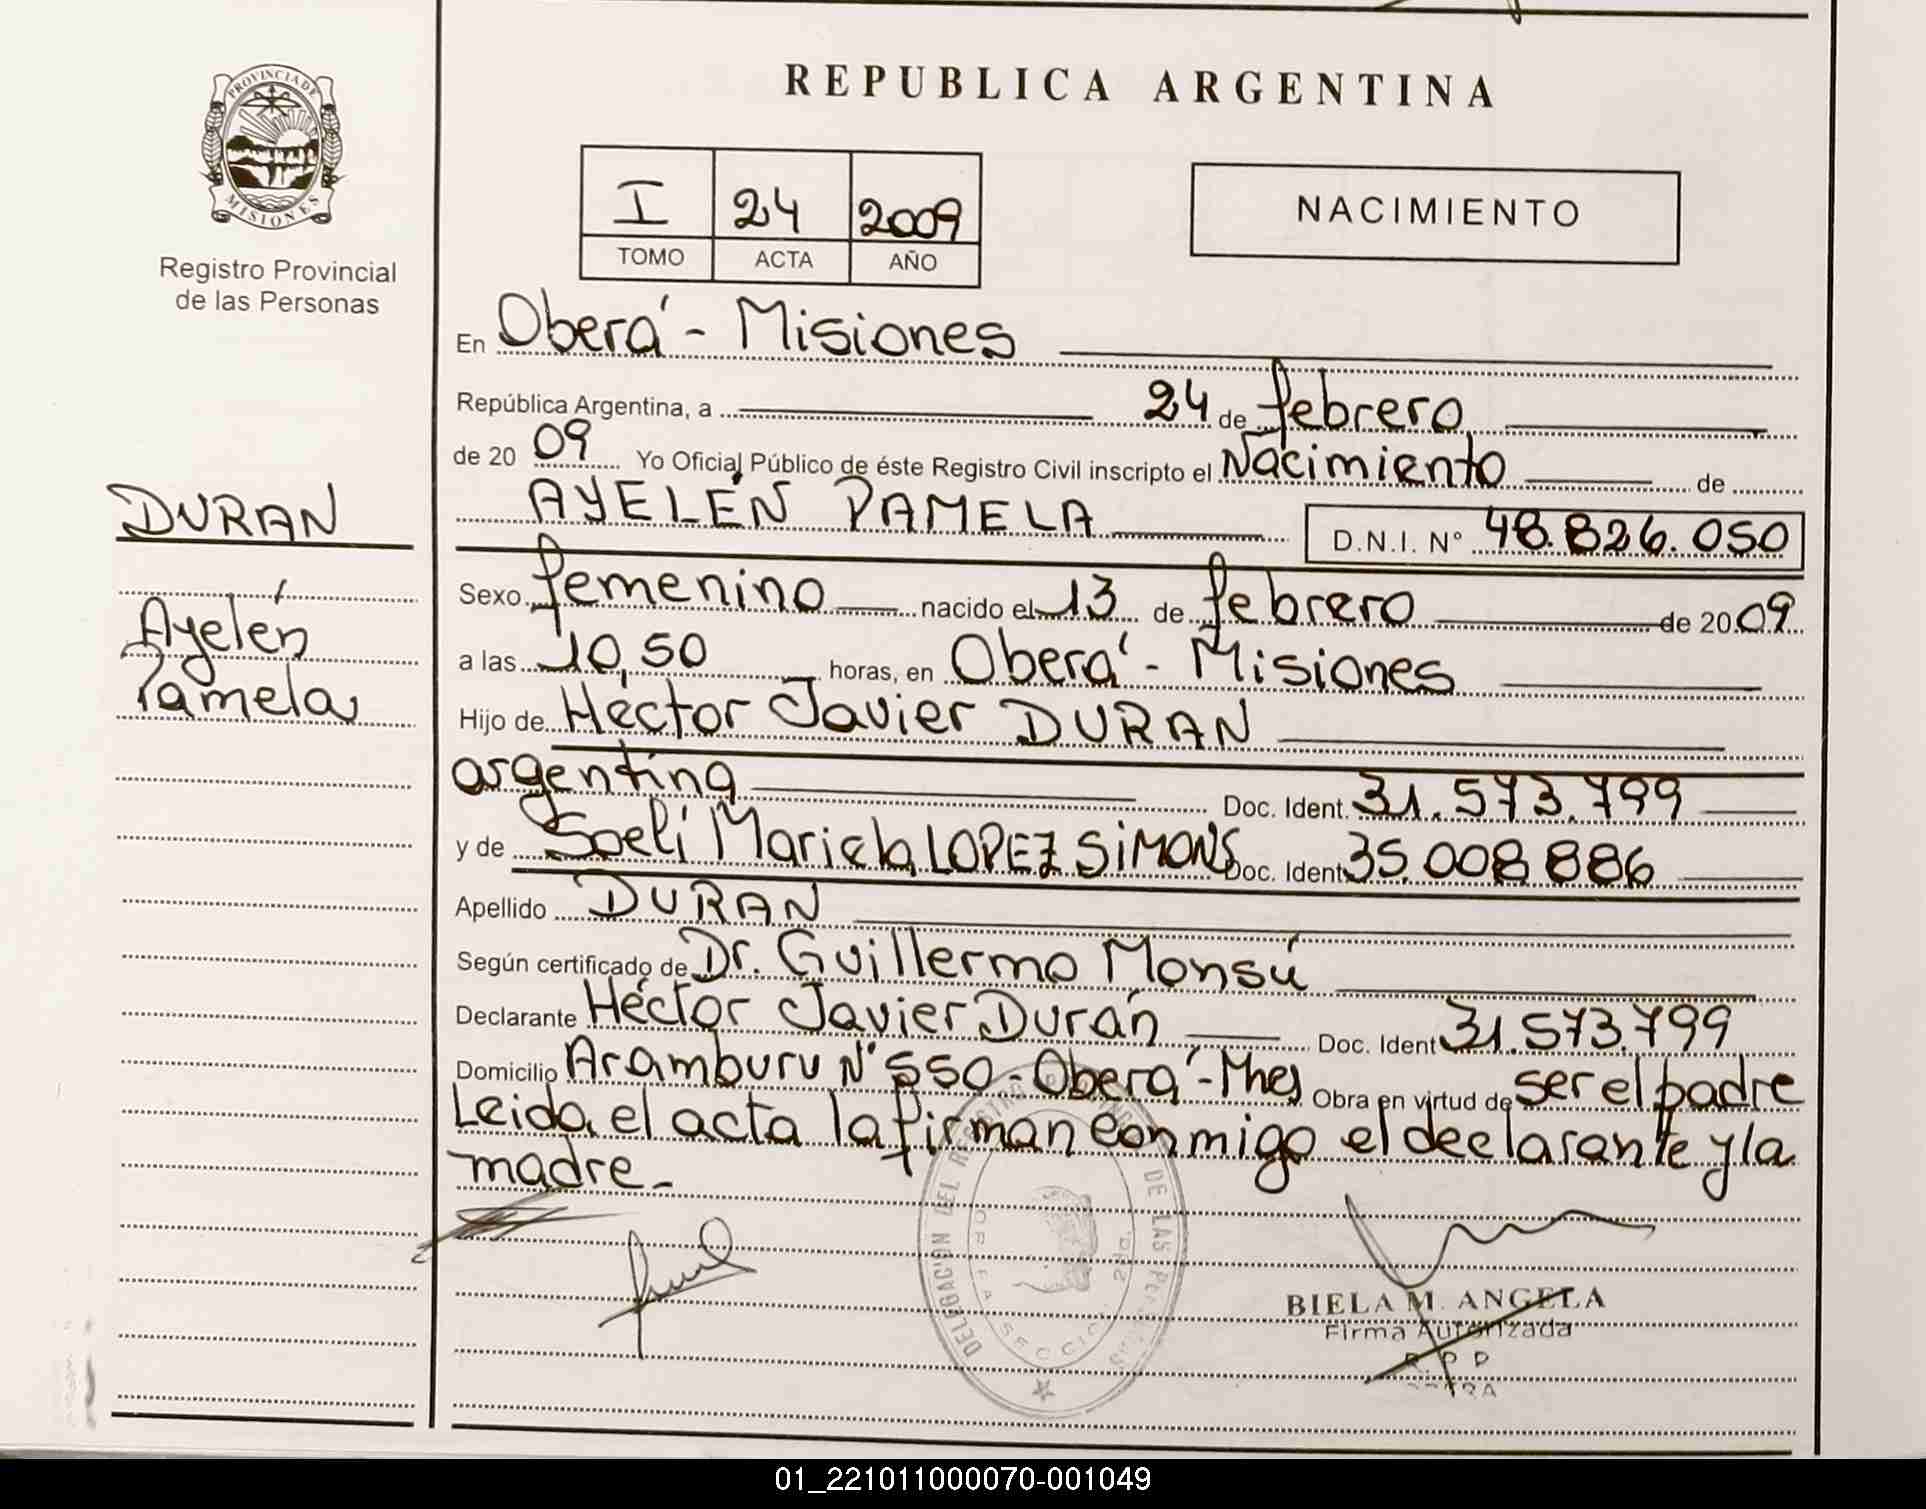 REPUBLICA ARGENTINA
PROVINCIA DE
MISIONES
Registro Provincial
de las Personas
I 24 2009
TOMO ACTA AÑO
NACIMIENTO
En Oberá - Misiones
República Argentina, a 24 de febrero
de 20 09 Yo Oficial Público de éste Registro Civil inscripto el Nacimiento de
AYELÉN PAMELA D.N.I. Nº 48.826.050
DURAN
Ayelén
Pamela
Sexo femenino nacido el 13 de febrero de 20 09
a las 10,50 horas, en Oberá - Misiones
Hijo de Héctor Javier DURAN
argentina Doc. Ident. 31.573.799
y de Soelí Mariela LOPEZ SIMONS Doc. Ident 35.008 886
Apellido DURAN
Según certificado de Dr. Guillermo Monsú
Declarante Héctor Javier Durán Doc. Ident 31.573.799
Domicilio Aramburu Nº 550 - Oberá - Mnes Obra en virtud de ser el padre
Leida el acta la firman conmigo el declarante y la
madre -
DELEGACION DEL REGISTRO DE LAS
BIELA M. ANGELA
Firma Autorizada
R. P P
01_221011000070-001049